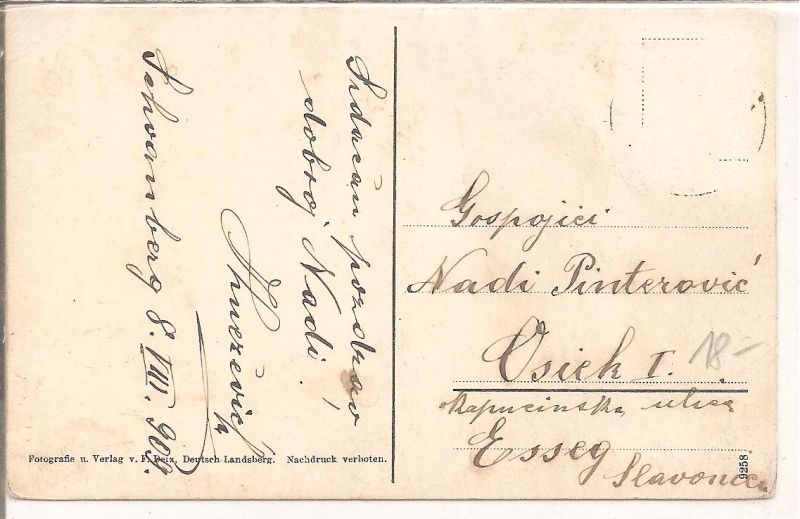 Schvamberg 8. VIII. 909.
Srdačan pozdrav
dobroj Nadi!
Gospojici
Nadi Pinterović
Osiek I.
18-
Kapucinska ulica
Esseg
Slavonien
Fotografie u. Verlag v. F. Peix, Deutsch-Landsberg. Nachdruck verboten.
9258